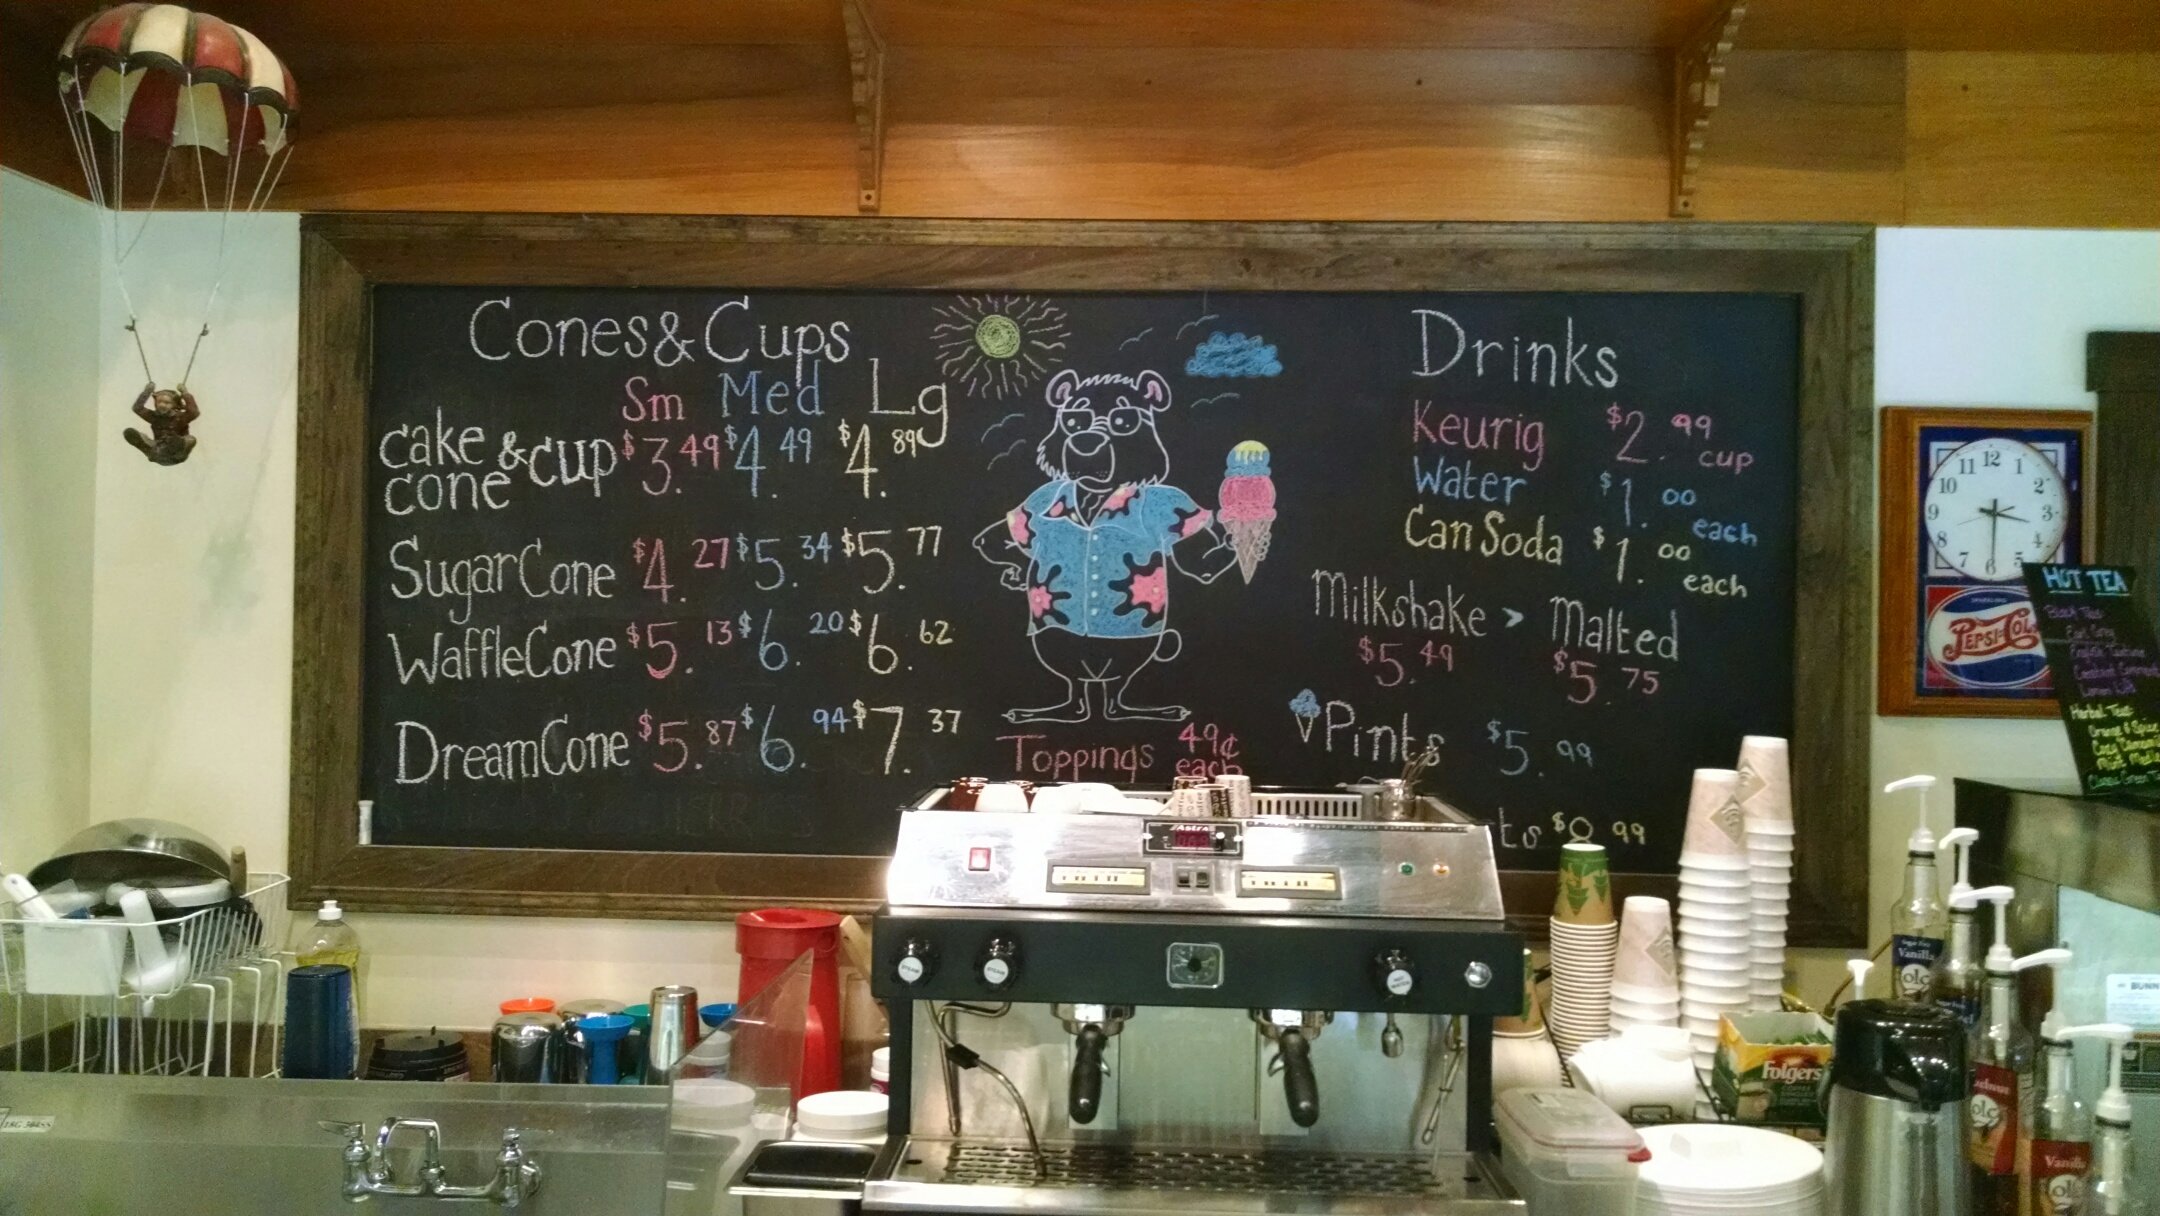 Cones & Cups
Sm Med Lg
cake cone & cup $3.49 $4.49 $4.89
Sugar Cone $4.27 $5.34 $5.77
Waffle Cone $5.13 $6.20 $6.62
Dream Cone $5.87 $6.94 $7.37
Toppings 49¢ each
Drinks
Keurig $2.99 cup
Water $1.00 each
Can Soda $1.00 each
Milkshake > Malted
$5.49 $5.75
Pints $5.99
ts $0.99
11 12 1
10 2
9 3
8
7 6 5
PEPSI-COLA
HOT TEA
Black Teas
Earl Grey
Herbal Teas
Astra
STEAM
STEAM
Folgers
Vanilla
Vanilla
BUNN